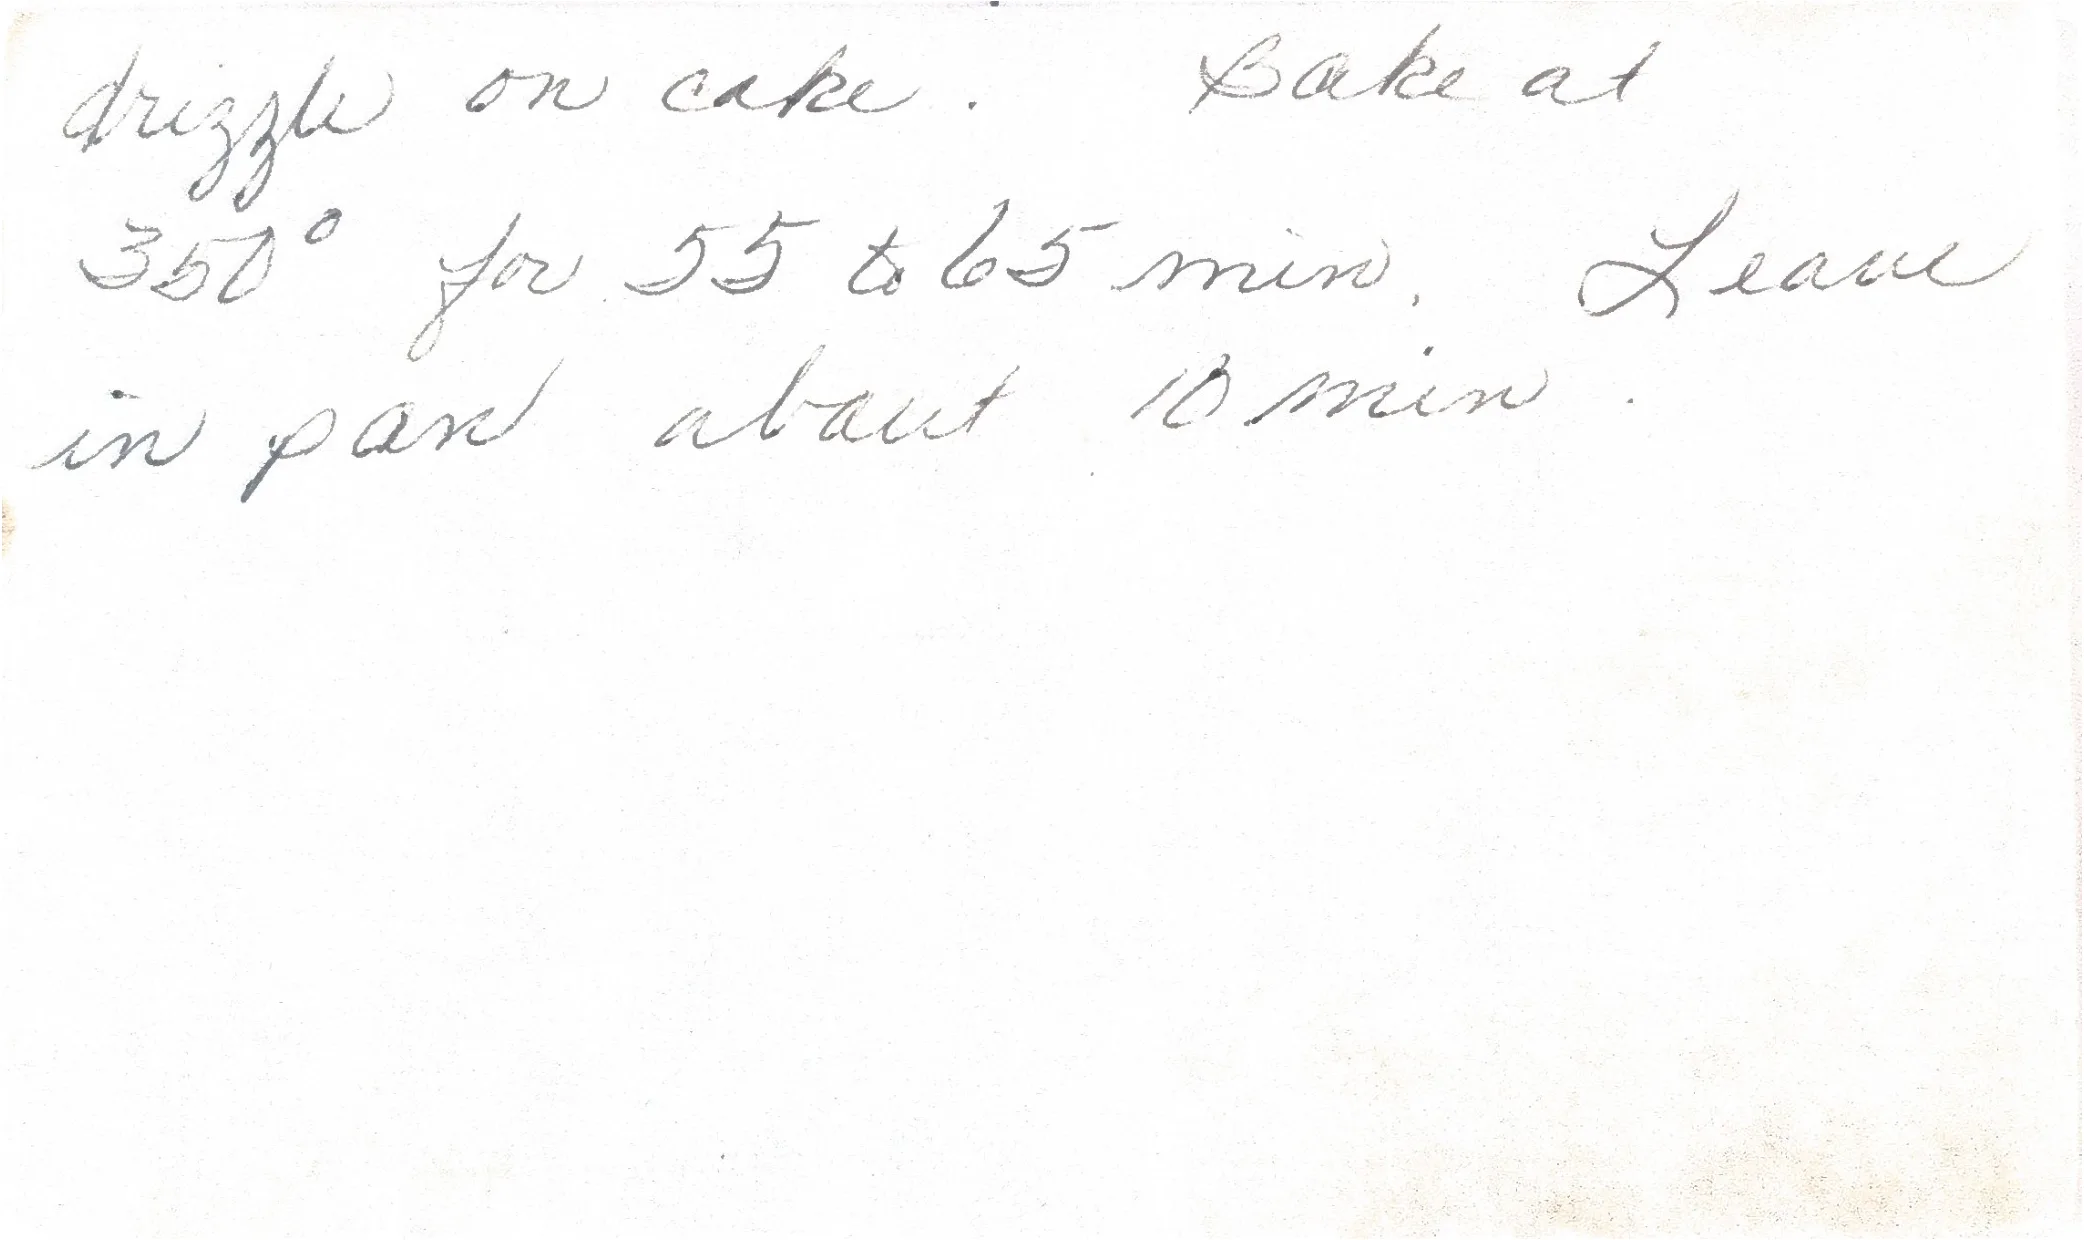 drizzle on cake. Bake at
350° for 55 to 65 min. Leave
in pan about 10 min.